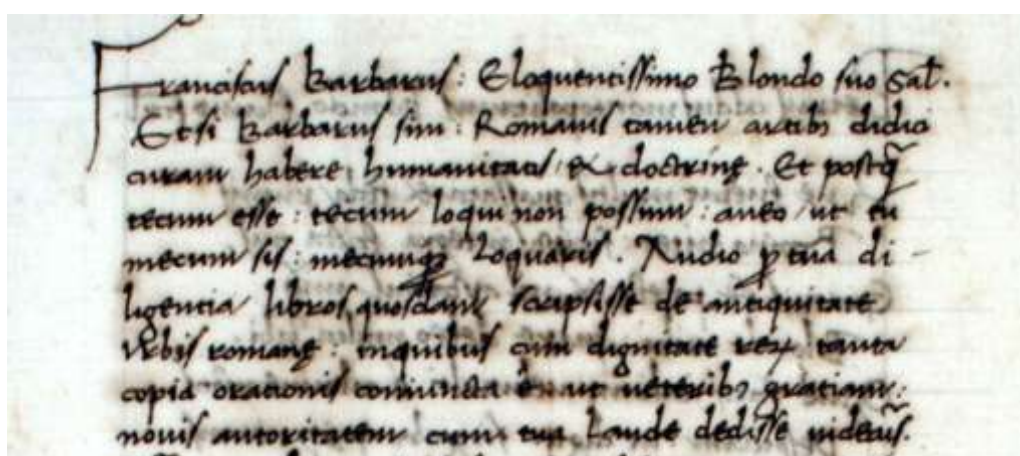 Franciscus Barbarus: Eloquentissimo Blondo suo Sal̃.
Et si Barbarus sim: Romanis tamen artibꝫ didici
curam habere humanitatis & doctrinę. Et postq̃
tecum esse: tecum loqui non possum: aueo ut tu
mecum sis: mecumqꝫ loquaris. Audio ꝓ tua di-
ligentia libros quosdam scripsisse de antiquitate
Vrbis romanę: inquibus cum dignitate reꝝ tanta
copia orationis coniuncta ẽ ut ueteribꝫ gratiam:
nouis autoritatem cum tua Laude dedisse uidearis.